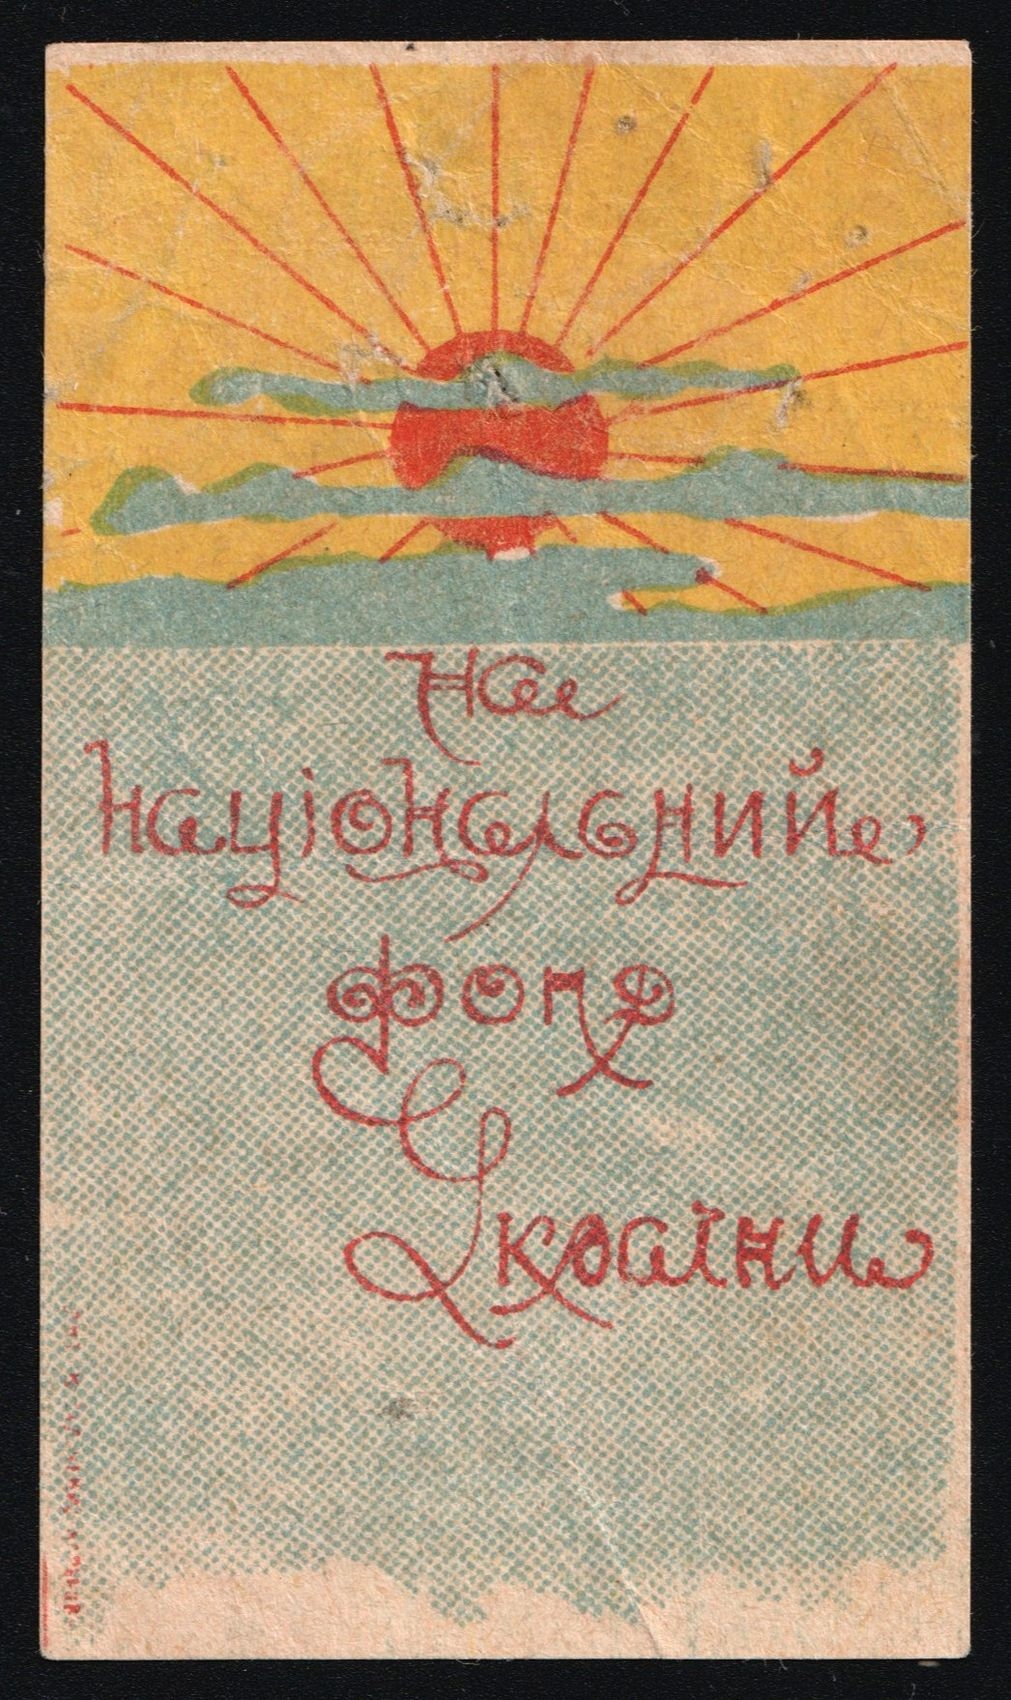 на
національний
фонд
України